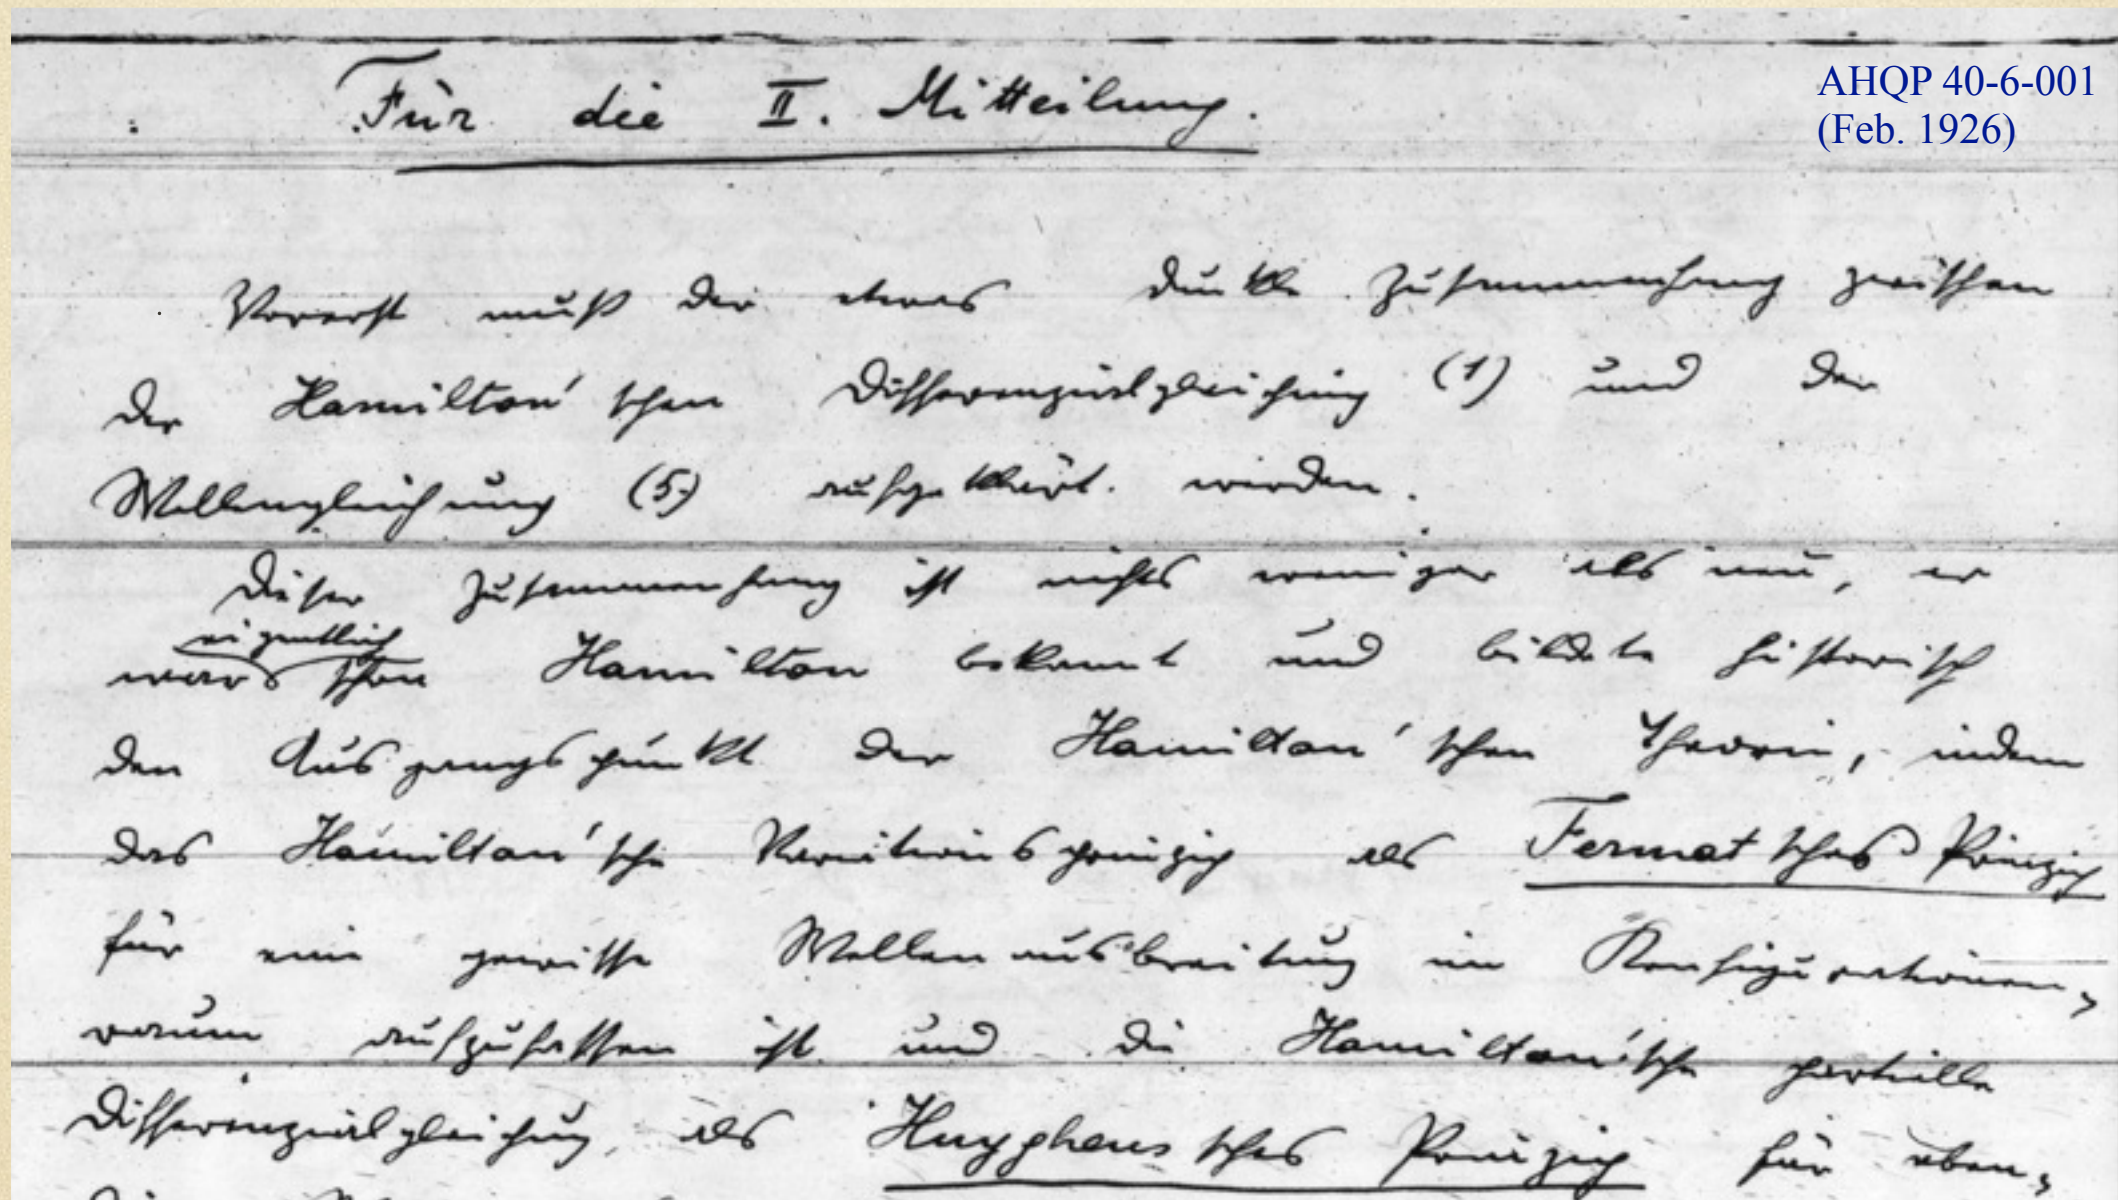 Für die II. Mitteilung.
AHQP 40-6-001
(Feb. 1926)
Vorerst muß der etwas dunkle Zusammenhang zwischen
der Hamilton'schen Differenzialgleichung (1) und der
Wellengleichung (5) aufgeklärt werden.
Dieser Zusammenhang ist nichts weniger als neu, er
eigentlich
war schon Hamilton bekannt und bildete historisch
den Ausgangspunkt der Hamilton'schen Theorie, indem
das Hamilton'sche Variationsprinzip als Fermatsches Prinzip
für eine gewisse Wellenausbreitung im Konfigurationen-
raum aufzufassen ist und die Hamilton'sche partielle
Differenzialgleichung, als Huyghenssches Prinzip für eben-